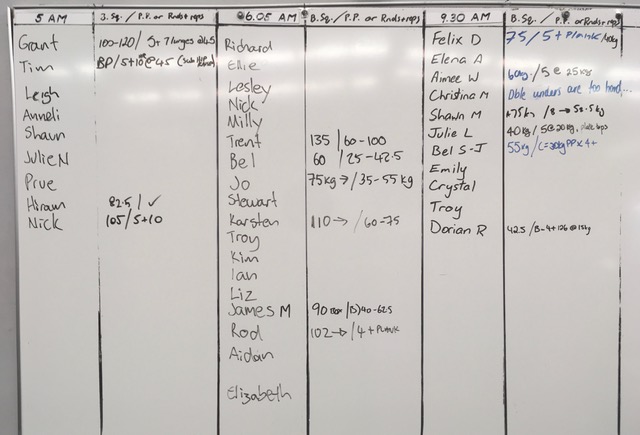 5 AM
B.Sq. / P.P. or Rnds+reps
Grant 100-120 / 5+7 lunges @45
Tim BP/5+10@45
Leigh
Anneli
Shaun
Julie N
Prue
Hiraw 82.5/✓
Nick 105/5+10
6.05 AM
B.Sq. / P.P. or Rnds+reps
Richard
Ellie
Lesley
Nick
Milly
Trent 135/60-100
Bel 60/25-42.5
Jo 75kg→/35-55kg
Stewart
Karsten 110→/60-75
Troy
Kim
Ian
Liz
James M 90 /(B)40-62.5
Rod 102→/4+PLANK
Aidan
Elizabeth
9.30 AM
B.Sq. / P.P. or Rnds+reps
Felix D 75/5+PLANK/40kg
Elena A
Aimee W 60kg/5@25kg
Christina M Dble unders are too hard...
Shawn M 75kg/B→52.5kg
Julie L 40kg/5@20kg, plate
Bel S-J 55kg/C=20kg PP x 4+
Emily
Crystal
Troy
Dorian R 42.5/B-4+126@15kg